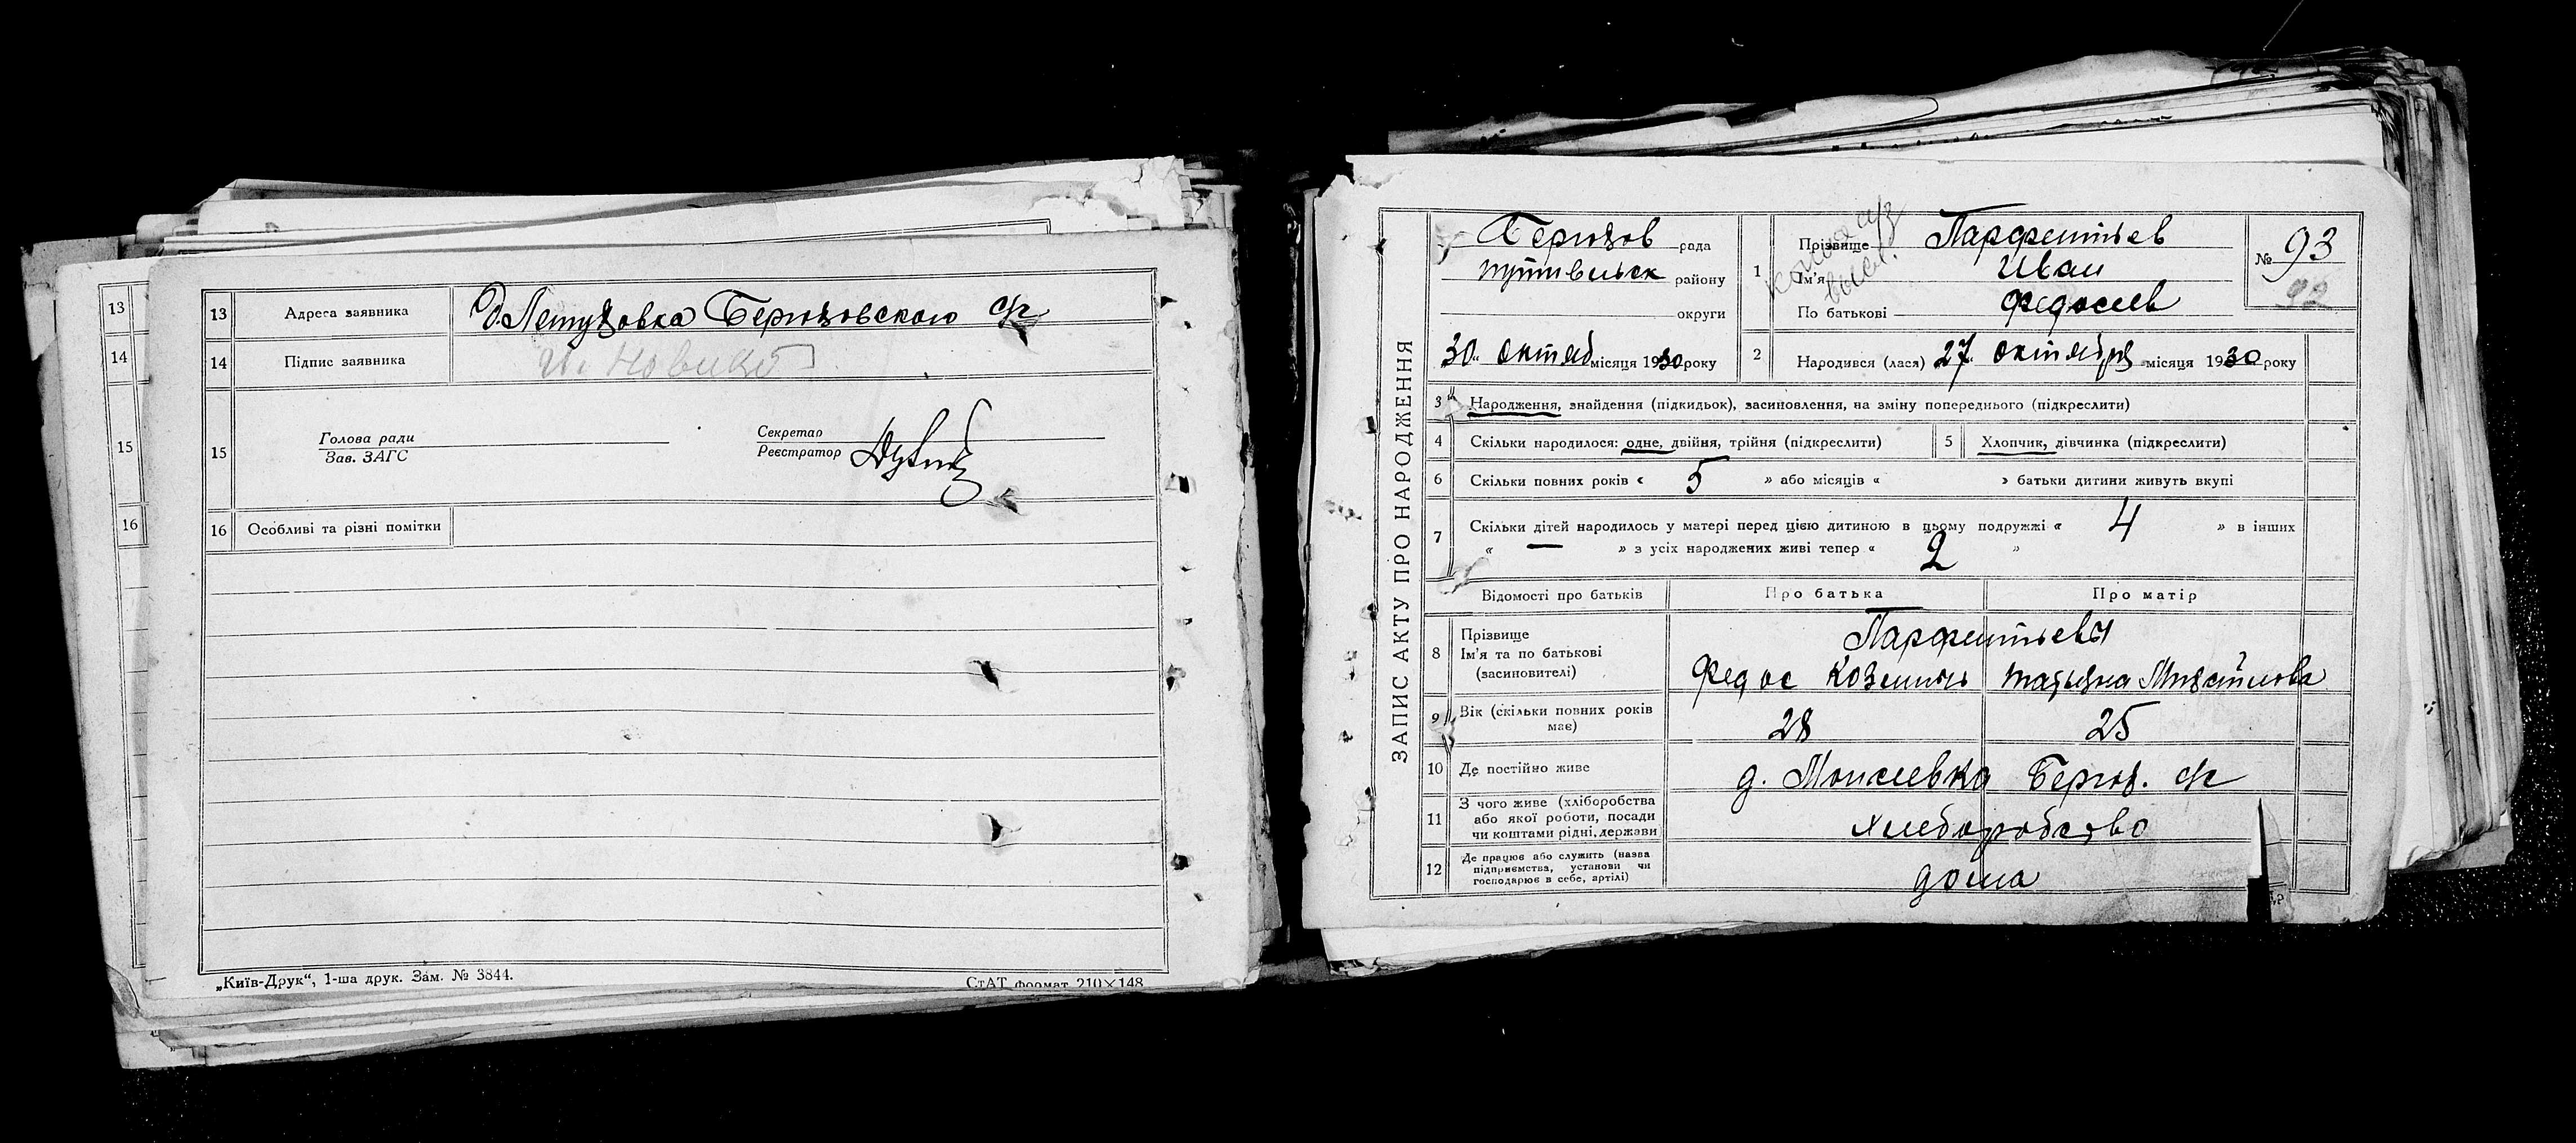 13
14
15
16
13 Адреса заявника д. Летуховка Берюховского с/с
14 Підпис заявника И. Новиков
15 Голова ради
Зав. ЗАГС
Секретар
Реєстратор
16 Особливі та різні помітки
„Київ-Друк“, 1-ша друк. Зам. № 3844.
СтАТ формат 210×148
ЗАПИС АКТУ ПРО НАРОДЖЕННЯ
Берюхов рада
путивльск району
округи
30 октяб місяця 1930 року
1 Прізвище Парфентьев
Ім'я Иван
По батькові Федосеев
№ 93
92
2 Народився (лася) 27 октября місяця 1930 року
3 Народження, знайдення (підкидьок), засиновлення, на зміну попереднього (підкреслити)
4 Скільки народилося: одне, двійня, трійня (підкреслити)
5 Хлопчик, дівчинка (підкреслити)
6 Скільки повних років « 5 » або місяців « » батьки дитини живуть вкупі
7 Скільки дітей народилось у матері перед цією дитиною в цьому подружжі « 4 » в інших
« — » з усіх народжених живі тепер « 2 »
Відомості про батьків Про батька Про матір
8 Прізвище
Ім'я та по батькові
(засиновителі)
Парфентьевы
Федос Козьмич Татьяна Михайлова
9 Вік (скільки повних років
має)
28 25
10 Де постійно живе д. Моисеевка Берюх. с/с
11 З чого живе (хліборобства
або якої роботи, посади
чи коштами рідні, держави
хлеборобство
12 Де працює або служить (назва
підприємства, установи чи
господарює в себе, артілі)
дома